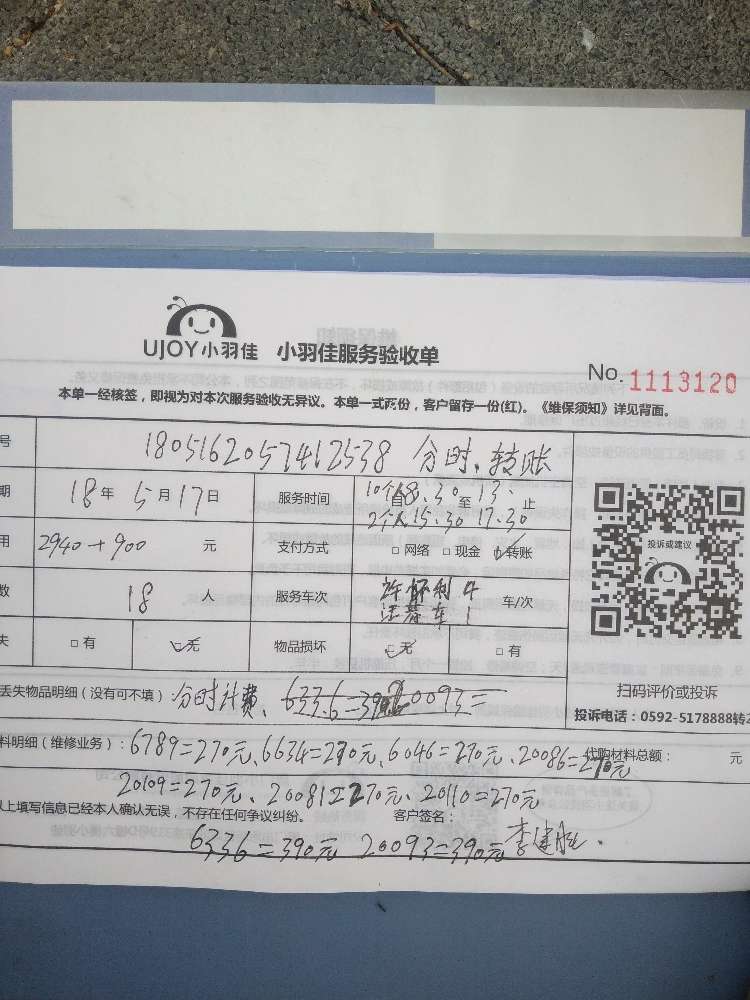 UJOY小羽佳 小羽佳服务验收单
No. 1113120
本单一经核签，即视为对本次服务验收无异议。本单一式两份，客户留存一份(红)。《维保须知》详见背面。
号 1805162057412538 分时、转账
期 18年5月17日 服务时间 10个人自8.30至13.止
2个人15.30 17.30
用 2940+900 元 支付方式 □网络 □现金 ☑转账
投诉或建议
数 18 人 服务车次 许怀利4 车/次
车1
失 □有 ☑无 物品损坏 ☑无 □有
扫码评价或投诉
丢失物品明细（没有可不填）: 分时计费、
投诉电话：0592-5178888转2
料明细（维修业务）: 6789=270元、6634=270元、6046=270元、20086=270元 代购材料总额： 元
20109=270元、20081=270元、20110=270元
以上填写信息已经本人确认无误，不存在任何争议纠纷。 客户签名：
6336=390元 20093=390元 李建胜